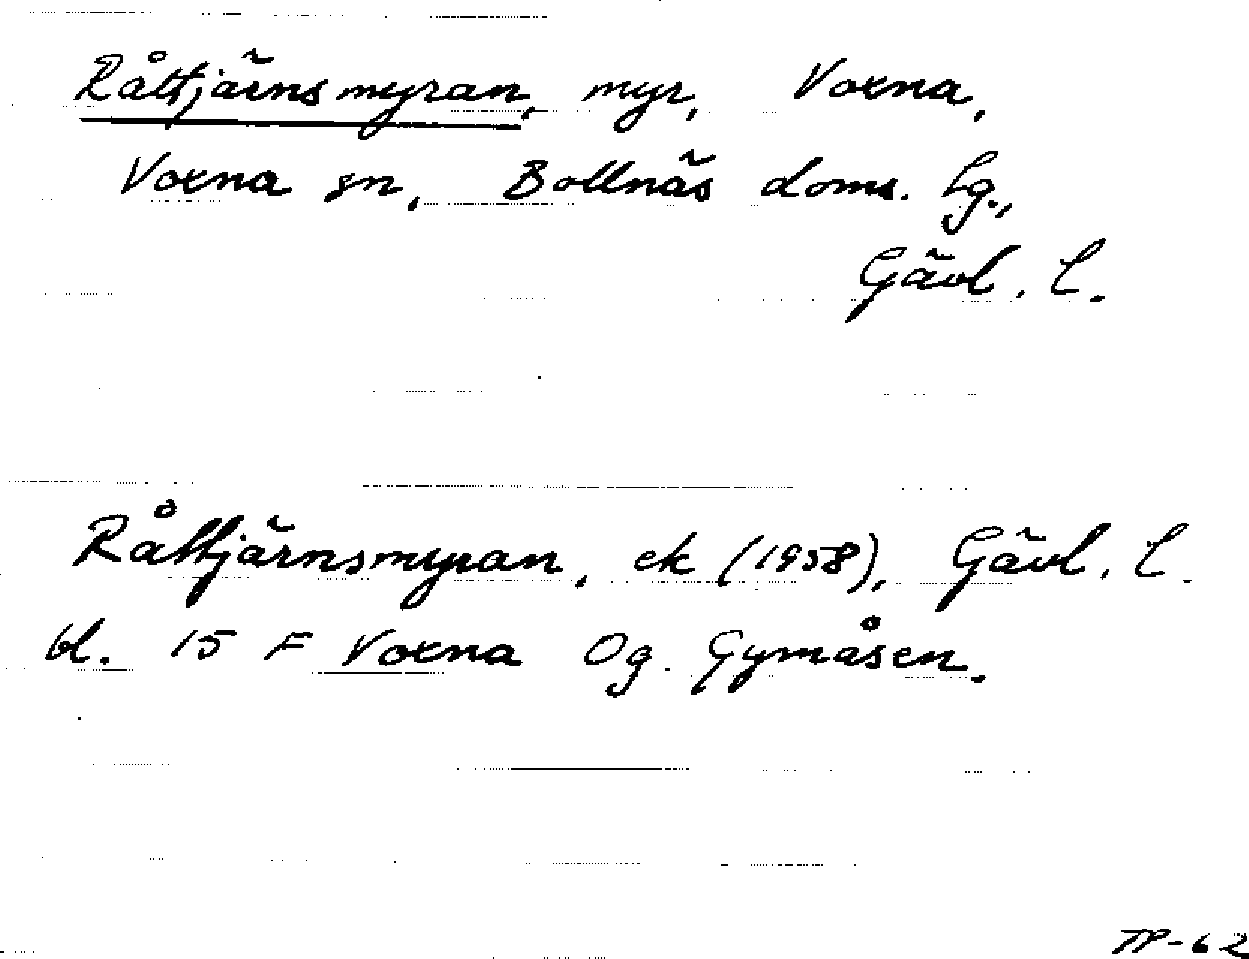 Råttjärnsmyran, myr, Voxna,
Voxna sn, Bollnäs doms. lg.,
Gävl. l.
Råttjärnsmyran, ek (1958), Gävl. l.
bl. 15 F Voxna Og. Gymåsen.
TP-62